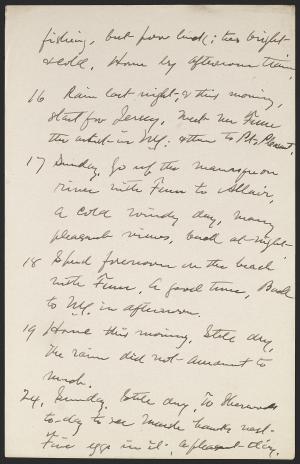 fishing, but poor luck; too bright
& cold. Home by afternoon train.
16 Rain last night, & this morning,
start for Jersey, meet Mr Fenn
the artist in N.Y. & then to Pt. Pleasant.
17 Sunday, go up the Manasquan
river with Fenn to Allair,
a cold windy day, many
pleasant views, back at night.
18 Spend forenoon on the beach
with Fenn, a good time, Back
to N.Y. in afternoon.
19 Home this morning, Still dry,
the rain did not amount to
much.
24, Sunday. Still dry, To Sherwoods
to-day to see marsh hawks nest.
Five eggs in it. A pleasant day.